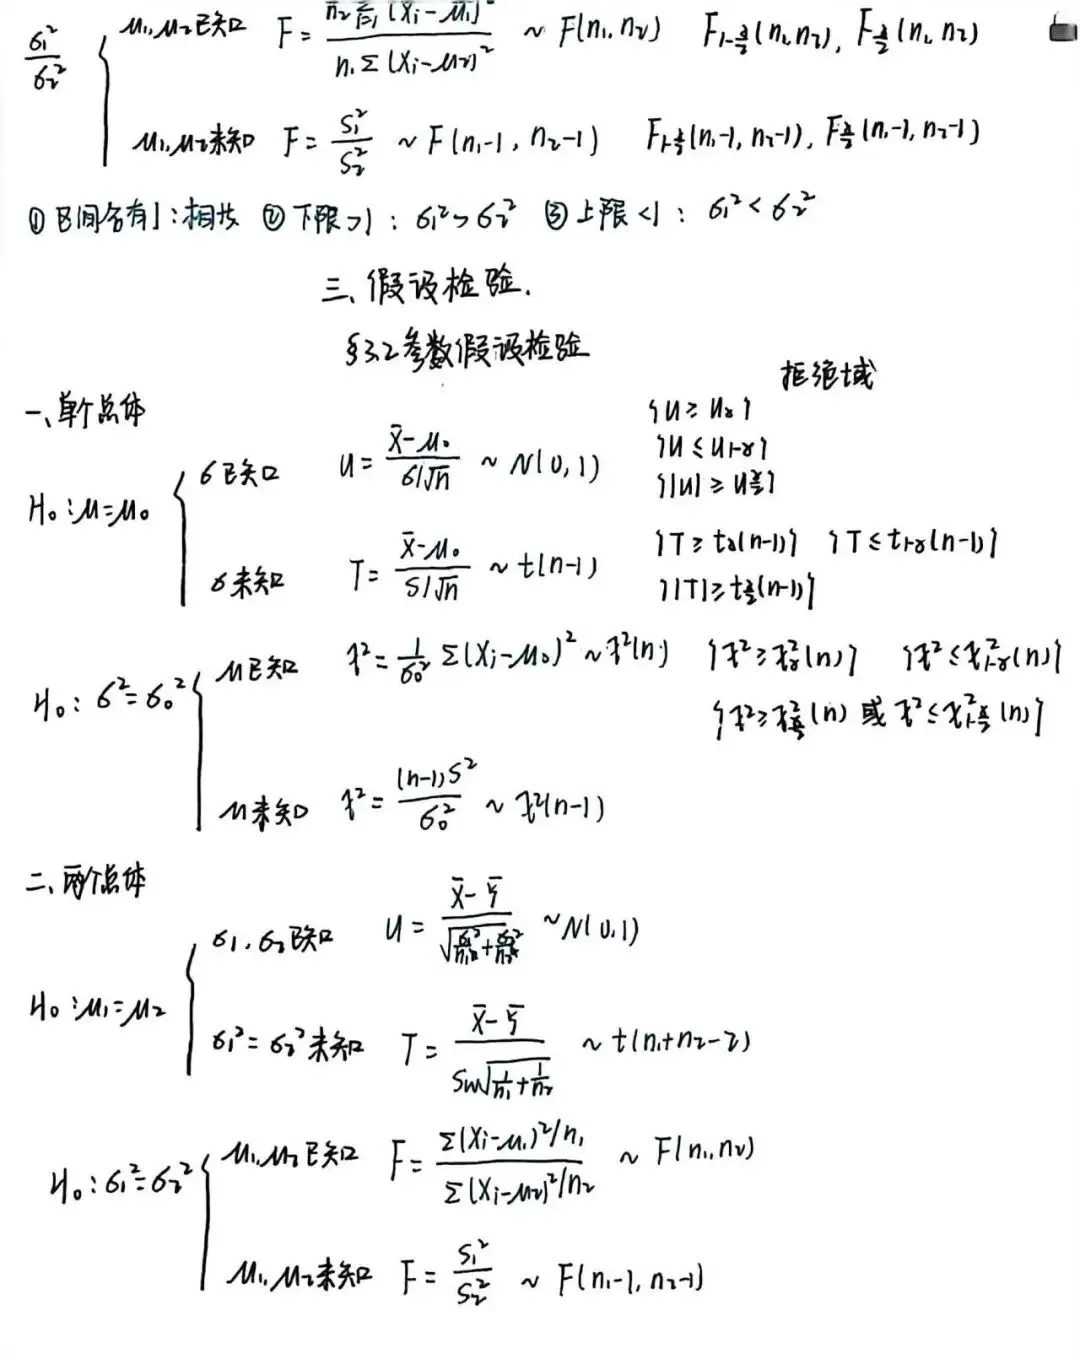 σ₁²/σ₂² { μ₁,μ₂已知 F = n₂Σ(Xᵢ-μ₁)²/n₁Σ(Xᵢ-μ₂)² ~ F(n₁,n₂) F₁₋α/₂(n₁,n₂), Fα/₂(n₁,n₂)
μ₁,μ₂未知 F = S₁²/S₂² ~ F(n₁-1, n₂-1) F₁₋α/₂(n₁-1, n₂-1), Fα/₂(n₁-1, n₂-1)
① 区间含有1:相扶 ② 下限>1: σ₁²>σ₂² ③ 上限<1: σ₁²<σ₂²
三、假设检验.
§3.2 参数假设检验
拒绝域
一、单个总体
H₀:μ=μ₀ { σ已知 U = (X̄-μ₀)/(σ/√n) ~ N(0,1) {U ≥ uα}
{U ≤ u₁₋α}
{|U| ≥ uα/₂}
σ未知 T = (X̄-μ₀)/(S/√n) ~ t(n-1) {T ≥ tα(n-1)} {T ≤ t₁₋α(n-1)}
{|T| ≥ tα/₂(n-1)}
H₀: σ²=σ₀² { μ已知 χ² = 1/σ₀² Σ(Xᵢ-μ₀)² ~ χ²(n) {χ² ≥ χ²α(n)} {χ² ≤ χ²₁₋α(n)}
{χ² ≥ χ²α/₂(n) 或 χ² ≤ χ²₁₋α/₂(n)}
μ未知 χ² = (n-1)S²/σ₀² ~ χ²(n-1)
二、两个总体
H₀:μ₁=μ₂ { σ₁,σ₂已知 U = (X̄-Ȳ)/√(σ₁²/n₁+σ₂²/n₂) ~ N(0,1)
σ₁²=σ₂²未知 T = (X̄-Ȳ)/(Sw√(1/n₁+1/n₂)) ~ t(n₁+n₂-2)
H₀: σ₁²=σ₂² { μ₁,μ₂已知 F = (Σ(Xᵢ-μ₁)²/n₁)/(Σ(Xᵢ-μ₂)²/n₂) ~ F(n₁,n₂)
μ₁,μ₂未知 F = S₁²/S₂² ~ F(n₁-1, n₂-1)